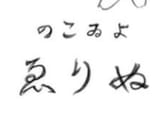 のこゐよ
ゑりぬ